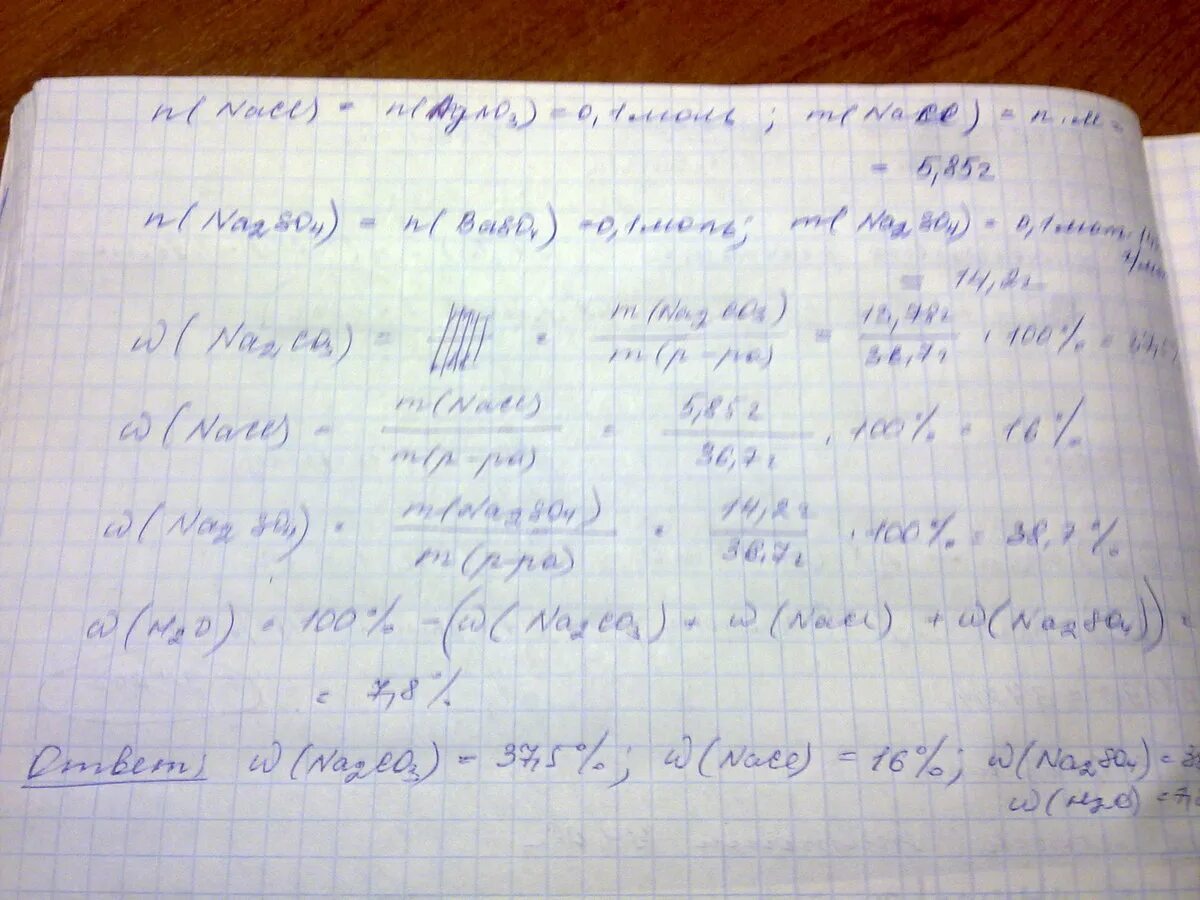 n(NaCl) = n(AgNO3) = 0,1 моль ; m(NaCl) = n.M =
= 5,85г
n(Na2SO4) = n(BaSO4) = 0,1 моль; m(Na2SO4) = 0,1
= 14,2г
ω(Na2CO3) = = m(Na2CO3) / m(р-ра) = 13,78г / 36,7г . 100% =
ω(NaCl) = m(NaCl) / m(р-ра) = 5,85г / 36,7г . 100% = 16%
ω(Na2SO4) = m(Na2SO4) / m(р-ра) = 14,2г / 36,7г . 100% = 38,7%
ω(H2O) = 100% - (ω(Na2CO3) + ω(NaCl) + ω(Na2SO4)) =
= 7,8%
Ответ: ω(Na2CO3) = 37,5%; ω(NaCl) = 16%; ω(Na2SO4) =
ω(H2O) =